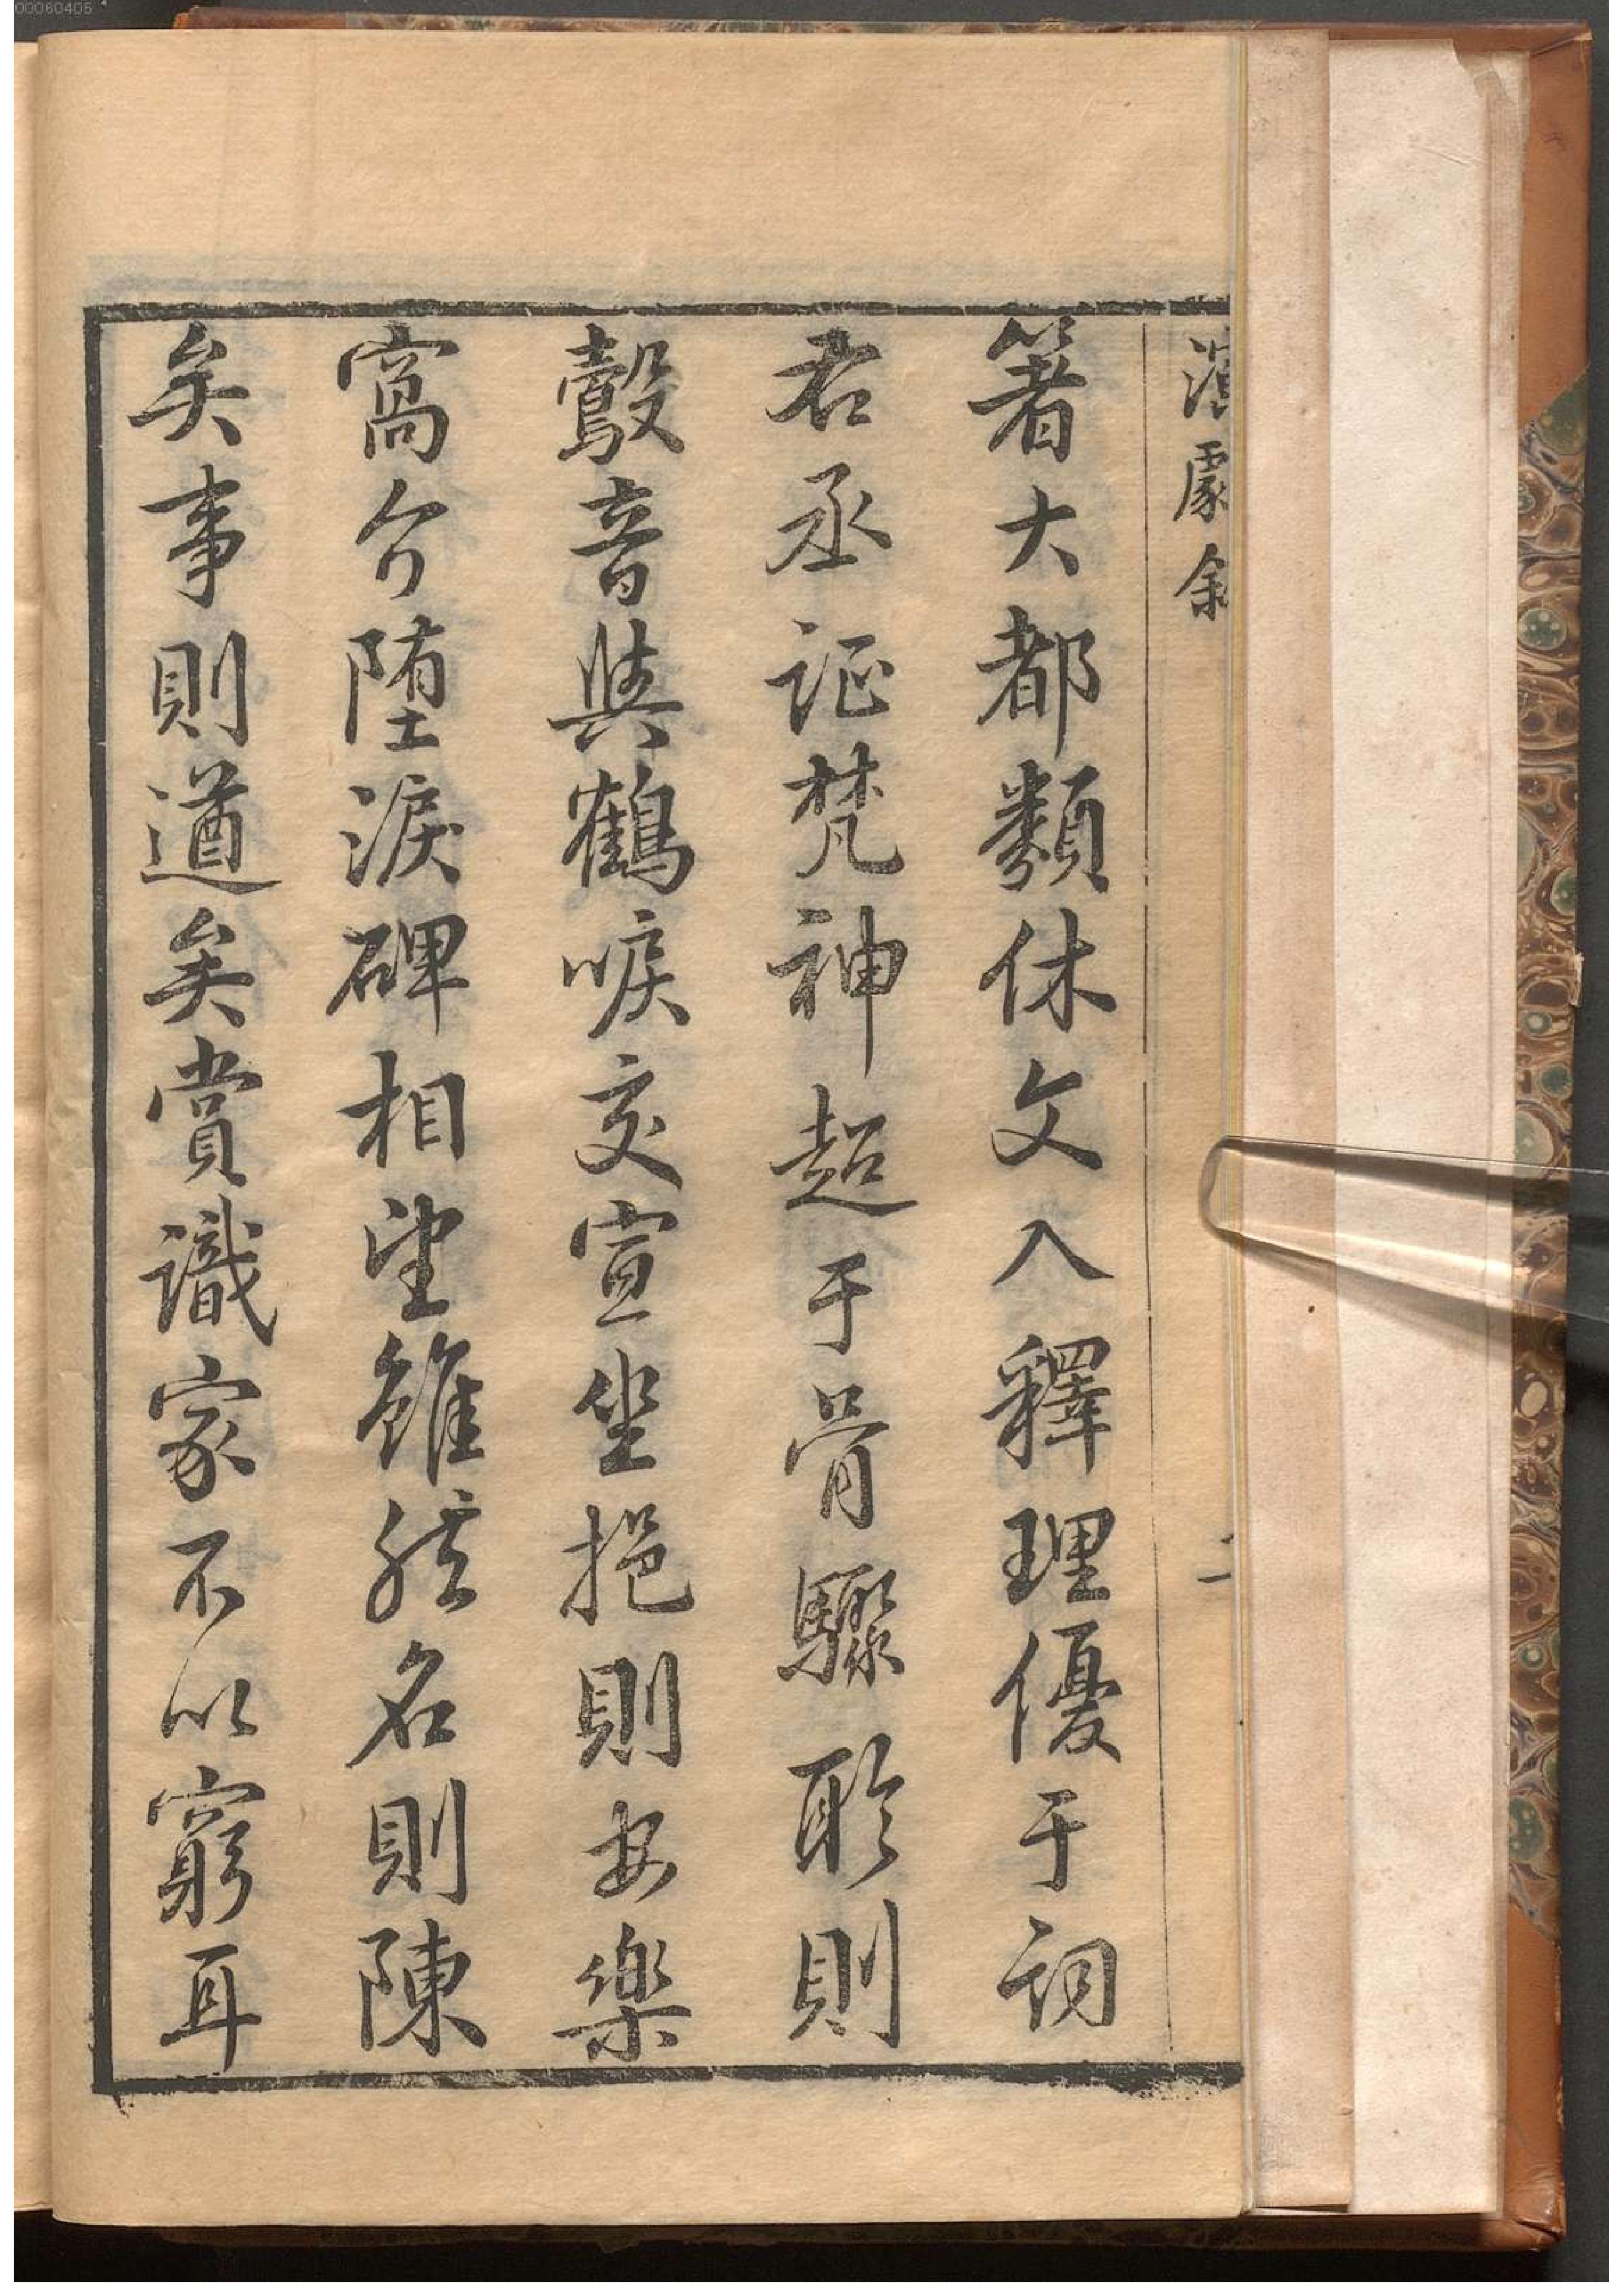 00060405
演劇敘
二
箸大都類休文入釋理優于詞
君丞証梵神超于骨驟聆則
鷇音與鶴唳交宣坐挹則安樂
窩今堕淚碑相望雖然名則陳
矣事則遒矣賞識家不以窮耳